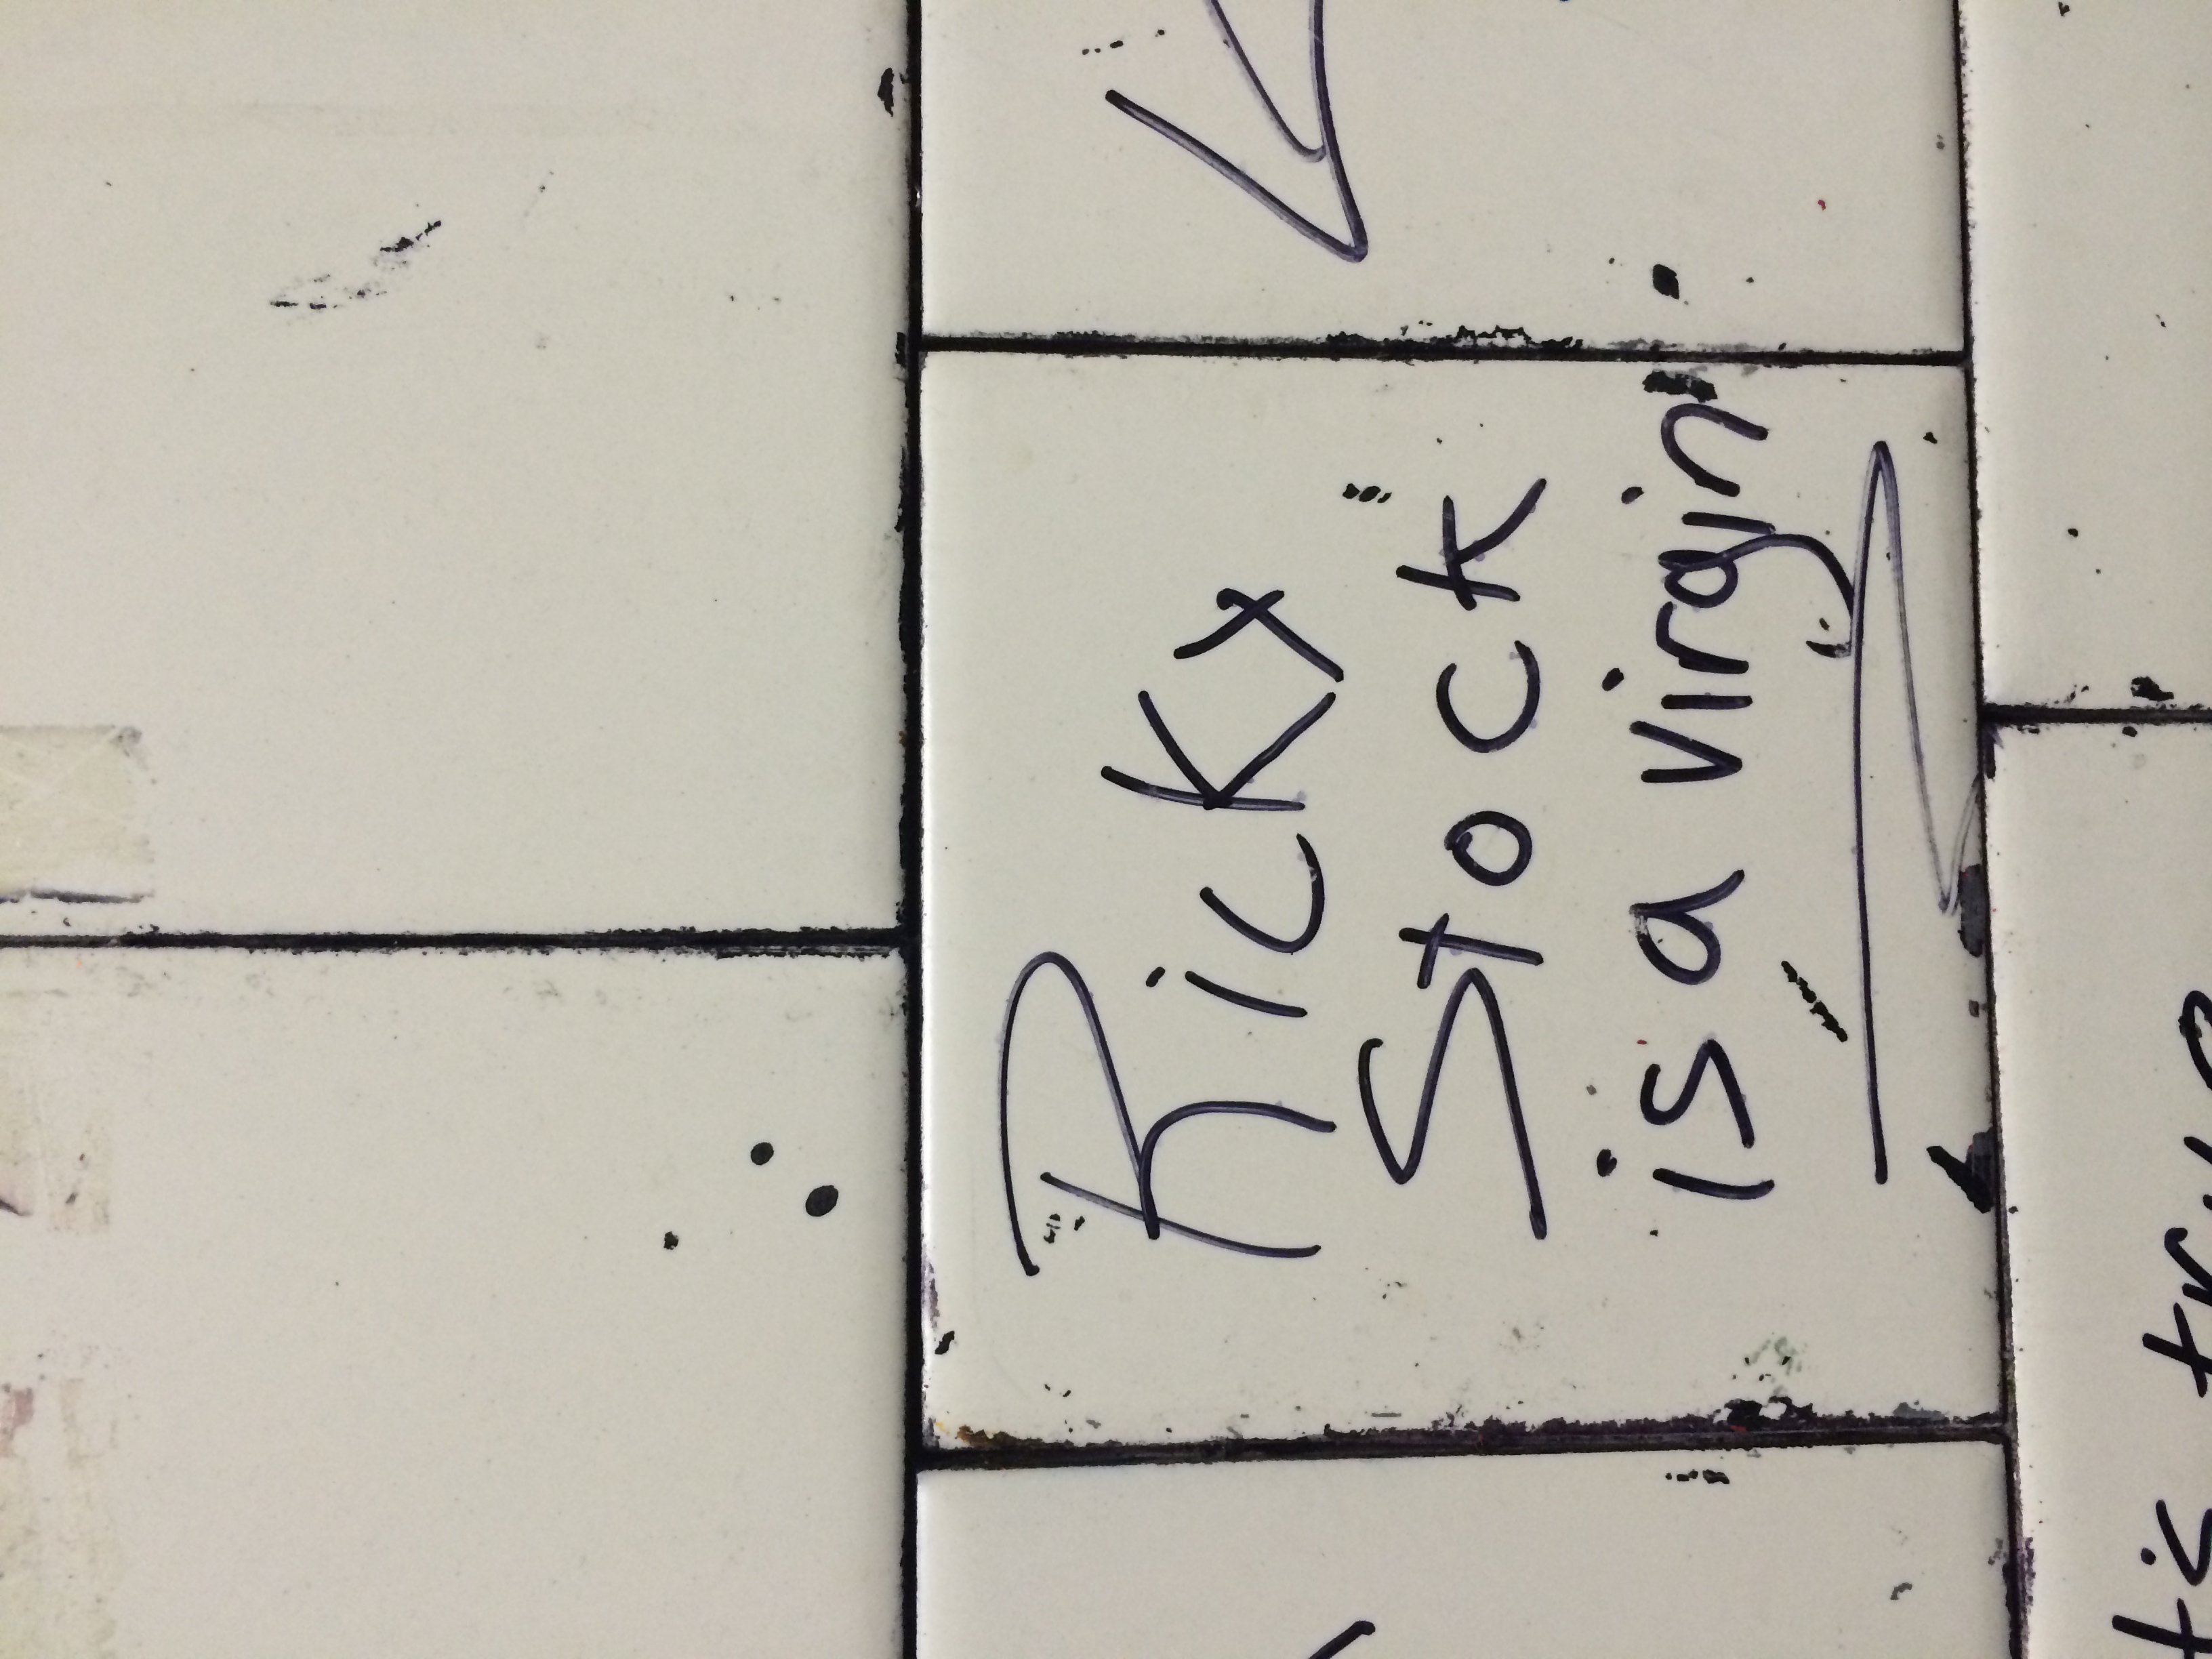 Ricky
Stock
is a virgin
t's true